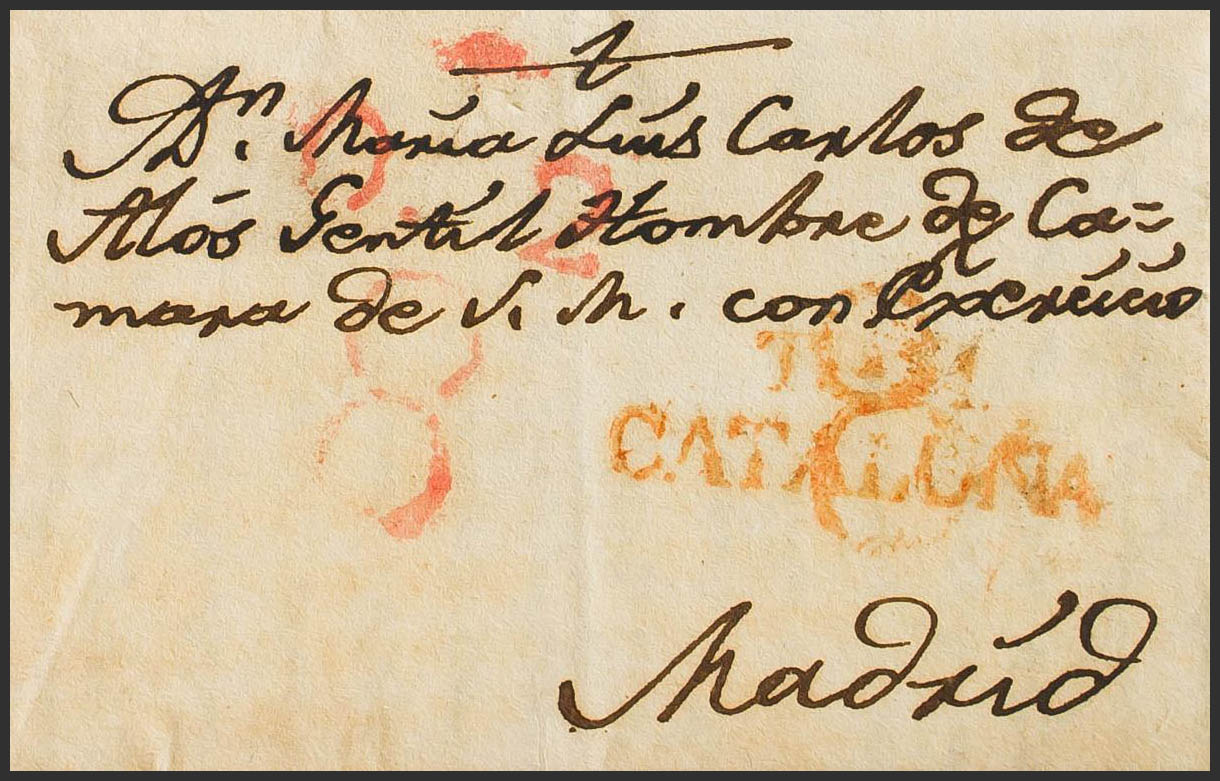 Dn. María Luis Carlos de
Alós Gentil Hombre de Ca=
mara de S. M. con Exercicio
2
CATALUÑA
Madrid